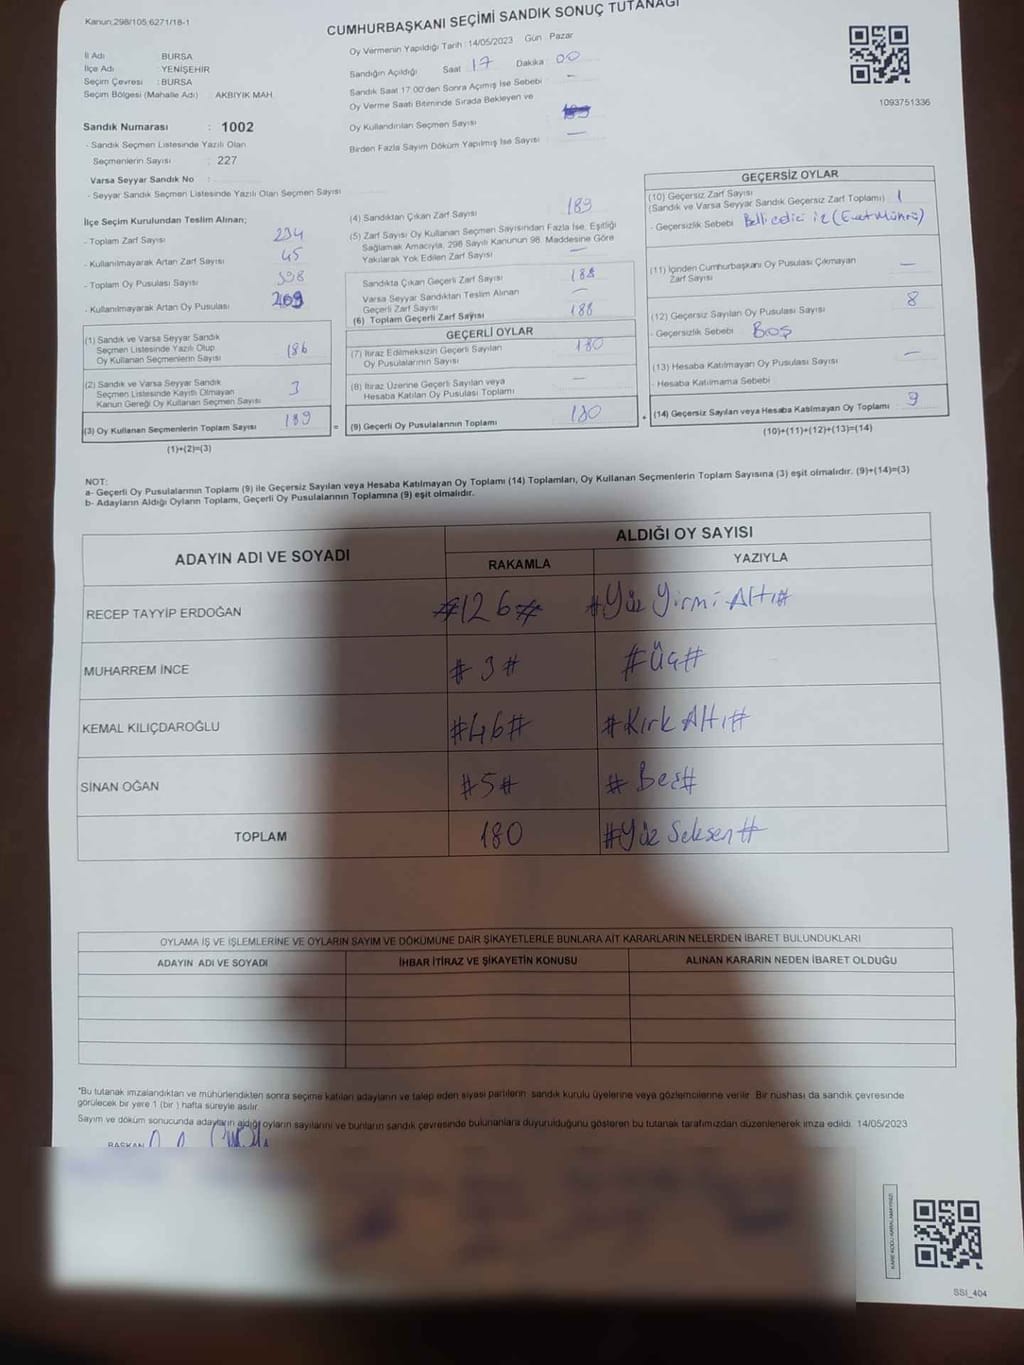 Kanun:298/105;6271/18-1
CUMHURBAŞKANI SEÇİMİ SANDIK SONUÇ TUTANAĞI
İl Adı BURSA
İlçe Adı : YENİŞEHİR
Seçim Çevresi : BURSA
Seçim Bölgesi (Mahalle Adı) AKBIYIK MAH.
Oy Vermenin Yapıldığı Tarih : 14/05/2023 Gün : Pazar
Sandığın Açıldığı Saat 17 Dakika 00
Sandık Saat 17.00'den Sonra Açılmış İse Sebebi : —
Oy Verme Saati Bitiminde Sırada Bekleyen ve
Oy Kullandırılan Seçmen Sayısı
Birden Fazla Sayım Döküm Yapılmış İse Sayısı : —
1093751336
Sandık Numarası : 1002
- Sandık Seçmen Listesinde Yazılı Olan
Seçmenlerin Sayısı : 227
Varsa Seyyar Sandık No :
- Seyyar Sandık Seçmen Listesinde Yazılı Olan Seçmen Sayısı
İlçe Seçim Kurulundan Teslim Alınan;
- Toplam Zarf Sayısı 234
- Kullanılmayarak Artan Zarf Sayısı 45
- Toplam Oy Pusulası Sayısı 398
- Kullanılmayarak Artan Oy Pusulası
(1) Sandık ve Varsa Seyyar Sandık
Seçmen Listesinde Yazılı Olup
Oy Kullanan Seçmenlerin Sayısı 186
(2) Sandık ve Varsa Seyyar Sandık
Seçmen Listesinde Kayıtlı Olmayan
Kanun Gereği Oy Kullanan Seçmen Sayısı 3
(3) Oy Kullanan Seçmenlerin Toplam Sayısı 189
(1)+(2)=(3)
(4) Sandıktan Çıkan Zarf Sayısı 189
(5) Zarf Sayısı Oy Kullanan Seçmen Sayısından Fazla İse, Eşitliği
Sağlamak Amacıyla, 298 Sayılı Kanunun 98. Maddesine Göre
Yakılarak Yok Edilen Zarf Sayısı —
Sandıkta Çıkan Geçerli Zarf Sayısı 188
Varsa Seyyar Sandıktan Teslim Alınan
Geçerli Zarf Sayısı —
(6) Toplam Geçerli Zarf Sayısı 188
GEÇERLİ OYLAR
(7) İtiraz Edilmeksizin Geçerli Sayılan
Oy Pusulalarının Sayısı 180
(8) İtiraz Üzerine Geçerli Sayılan veya
Hesaba Katılan Oy Pusulası Toplamı —
= (9) Geçerli Oy Pusulalarının Toplamı 180
GEÇERSİZ OYLAR
(10) Geçersiz Zarf Sayısı
(Sandık ve Varsa Seyyar Sandık Geçersiz Zarf Toplamı) 1
- Geçersizlik Sebebi Belli edici iz (Evet Mührü)
(11) İçinden Cumhurbaşkanı Oy Pusulası Çıkmayan
Zarf Sayısı —
(12) Geçersiz Sayılan Oy Pusulası Sayısı 8
- Geçersizlik Sebebi Boş
(13) Hesaba Katılmayan Oy Pusulası Sayısı —
- Hesaba Katılmama Sebebi
+ (14) Geçersiz Sayılan veya Hesaba Katılmayan Oy Toplamı 9
(10)+(11)+(12)+(13)=(14)
NOT:
a- Geçerli Oy Pusulalarının Toplamı (9) ile Geçersiz Sayılan veya Hesaba Katılmayan Oy Toplamı (14) Toplamları, Oy Kullanan Seçmenlerin Toplam Sayısına (3) eşit olmalıdır. (9)+(14)=(3)
b- Adayların Aldığı Oyların Toplamı, Geçerli Oy Pusulalarının Toplamına (9) eşit olmalıdır.
ADAYIN ADI VE SOYADI ALDIĞI OY SAYISI
RAKAMLA YAZIYLA
RECEP TAYYİP ERDOĞAN #126# #Yüz Yirmi Altı#
MUHARREM İNCE #3# #Üç#
KEMAL KILIÇDAROĞLU #46# #Kırk Altı#
SİNAN OĞAN #5# #Beş#
TOPLAM 180 #Yüz Seksen#
OYLAMA İŞ VE İŞLEMLERİNE VE OYLARIN SAYIM VE DÖKÜMÜNE DAİR ŞİKAYETLERLE BUNLARA AİT KARARLARIN NELERDEN İBARET BULUNDUKLARI
ADAYIN ADI VE SOYADI İHBAR İTİRAZ VE ŞİKAYETİN KONUSU ALINAN KARARIN NEDEN İBARET OLDUĞU
*Bu tutanak imzalandıktan ve mühürlendikten sonra seçime katılan adayların ve talep eden siyasi partilerin sandık kurulu üyelerine veya gözlemcilerine verilir. Bir nüshası da sandık çevresinde
görülecek bir yere 1 (bir ) hafta süreyle asılır.
Sayım ve döküm sonucunda adayların aldığı oyların sayılarını ve bunların sandık çevresinde bulunanlara duyurulduğunu gösteren bu tutanak tarafımızdan düzenlenerek imza edildi. 14/05/2023
BAŞKAN
SSI_404